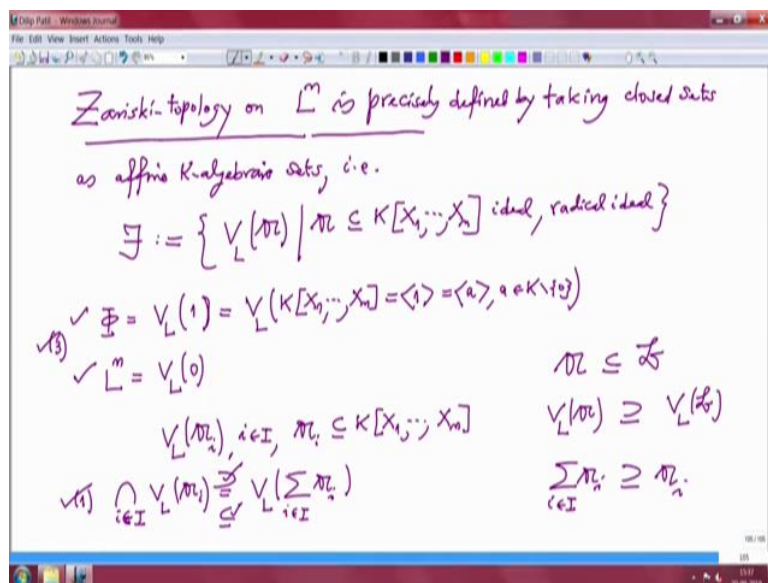 Dilip Patil - Windows Journal
File Edit View Insert Actions Tools Help
Zariski-topology on L^n is precisely defined by taking closed sets
as affine K-algebraic sets, i.e.
𝓕 := { V_L(𝔄) | 𝔄 ⊆ K[X_1,…,X_n] ideal, radical ideal }
✓ Φ = V_L(1) = V_L(K[X_1,…,X_n] = <1> = <a>, a∈K\{0})
✓(3)
✓ L^n = V_L(0)
𝔄 ⊆ 𝔅
V_L(𝔄_i), i∈I, 𝔄_i ⊆ K[X_1,…,X_n]
V_L(𝔄) ⊇ V_L(𝔅)
✓(1) ⋂_{i∈I} V_L(𝔄_i) ⊇✓ = ⊆✓ V_L(∑_{i∈I} 𝔄_i)
∑_{i∈I} 𝔄_i ⊇ 𝔄_i
105/105
105
15:17